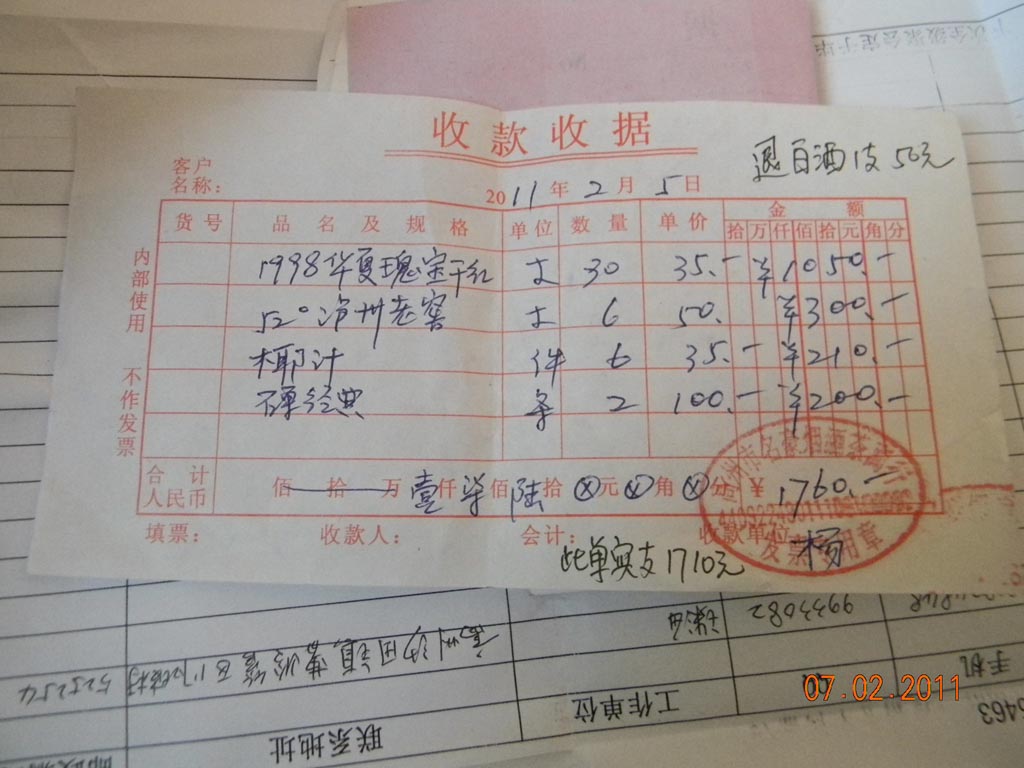 收款收据
退白酒1支50元
客户
名称：
2011年2月5日
货号 品名及规格 单位 数量 单价 金额
拾万仟佰拾元角分
1998华夏瑰宝干红 支 30 35.- ¥1050.-
52°泸州老窖 支 6 50. ¥300.-
椰汁 件 6 35.- ¥210.-
经典 条 2 100.- ¥200.-
合计
人民币
佰拾万壹仟柒佰陆拾⊗元⊗角⊗分 ¥1760.-
内部使用 不作发票
填票： 收款人： 会计： 收款单位 杨
此单实支1710元
发票专用章
9933082
525254
联系地址
工作单位
手机
5463
07.02.2011